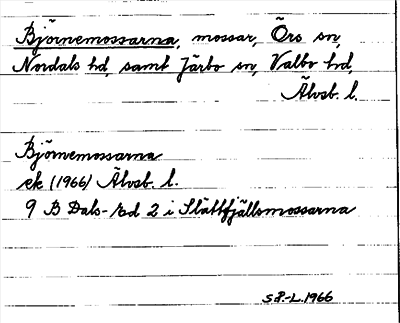 Björnemossarna, mossar, Örs sn,
Nordals hd, samt Järbo sn, Valbo hd,
Älvsb. l.
Björnemossarna
ek (1966) Älvsb. l.
9 B Dals-Ed 2 i Slättfjällsmossarna
S P.-L. 1966